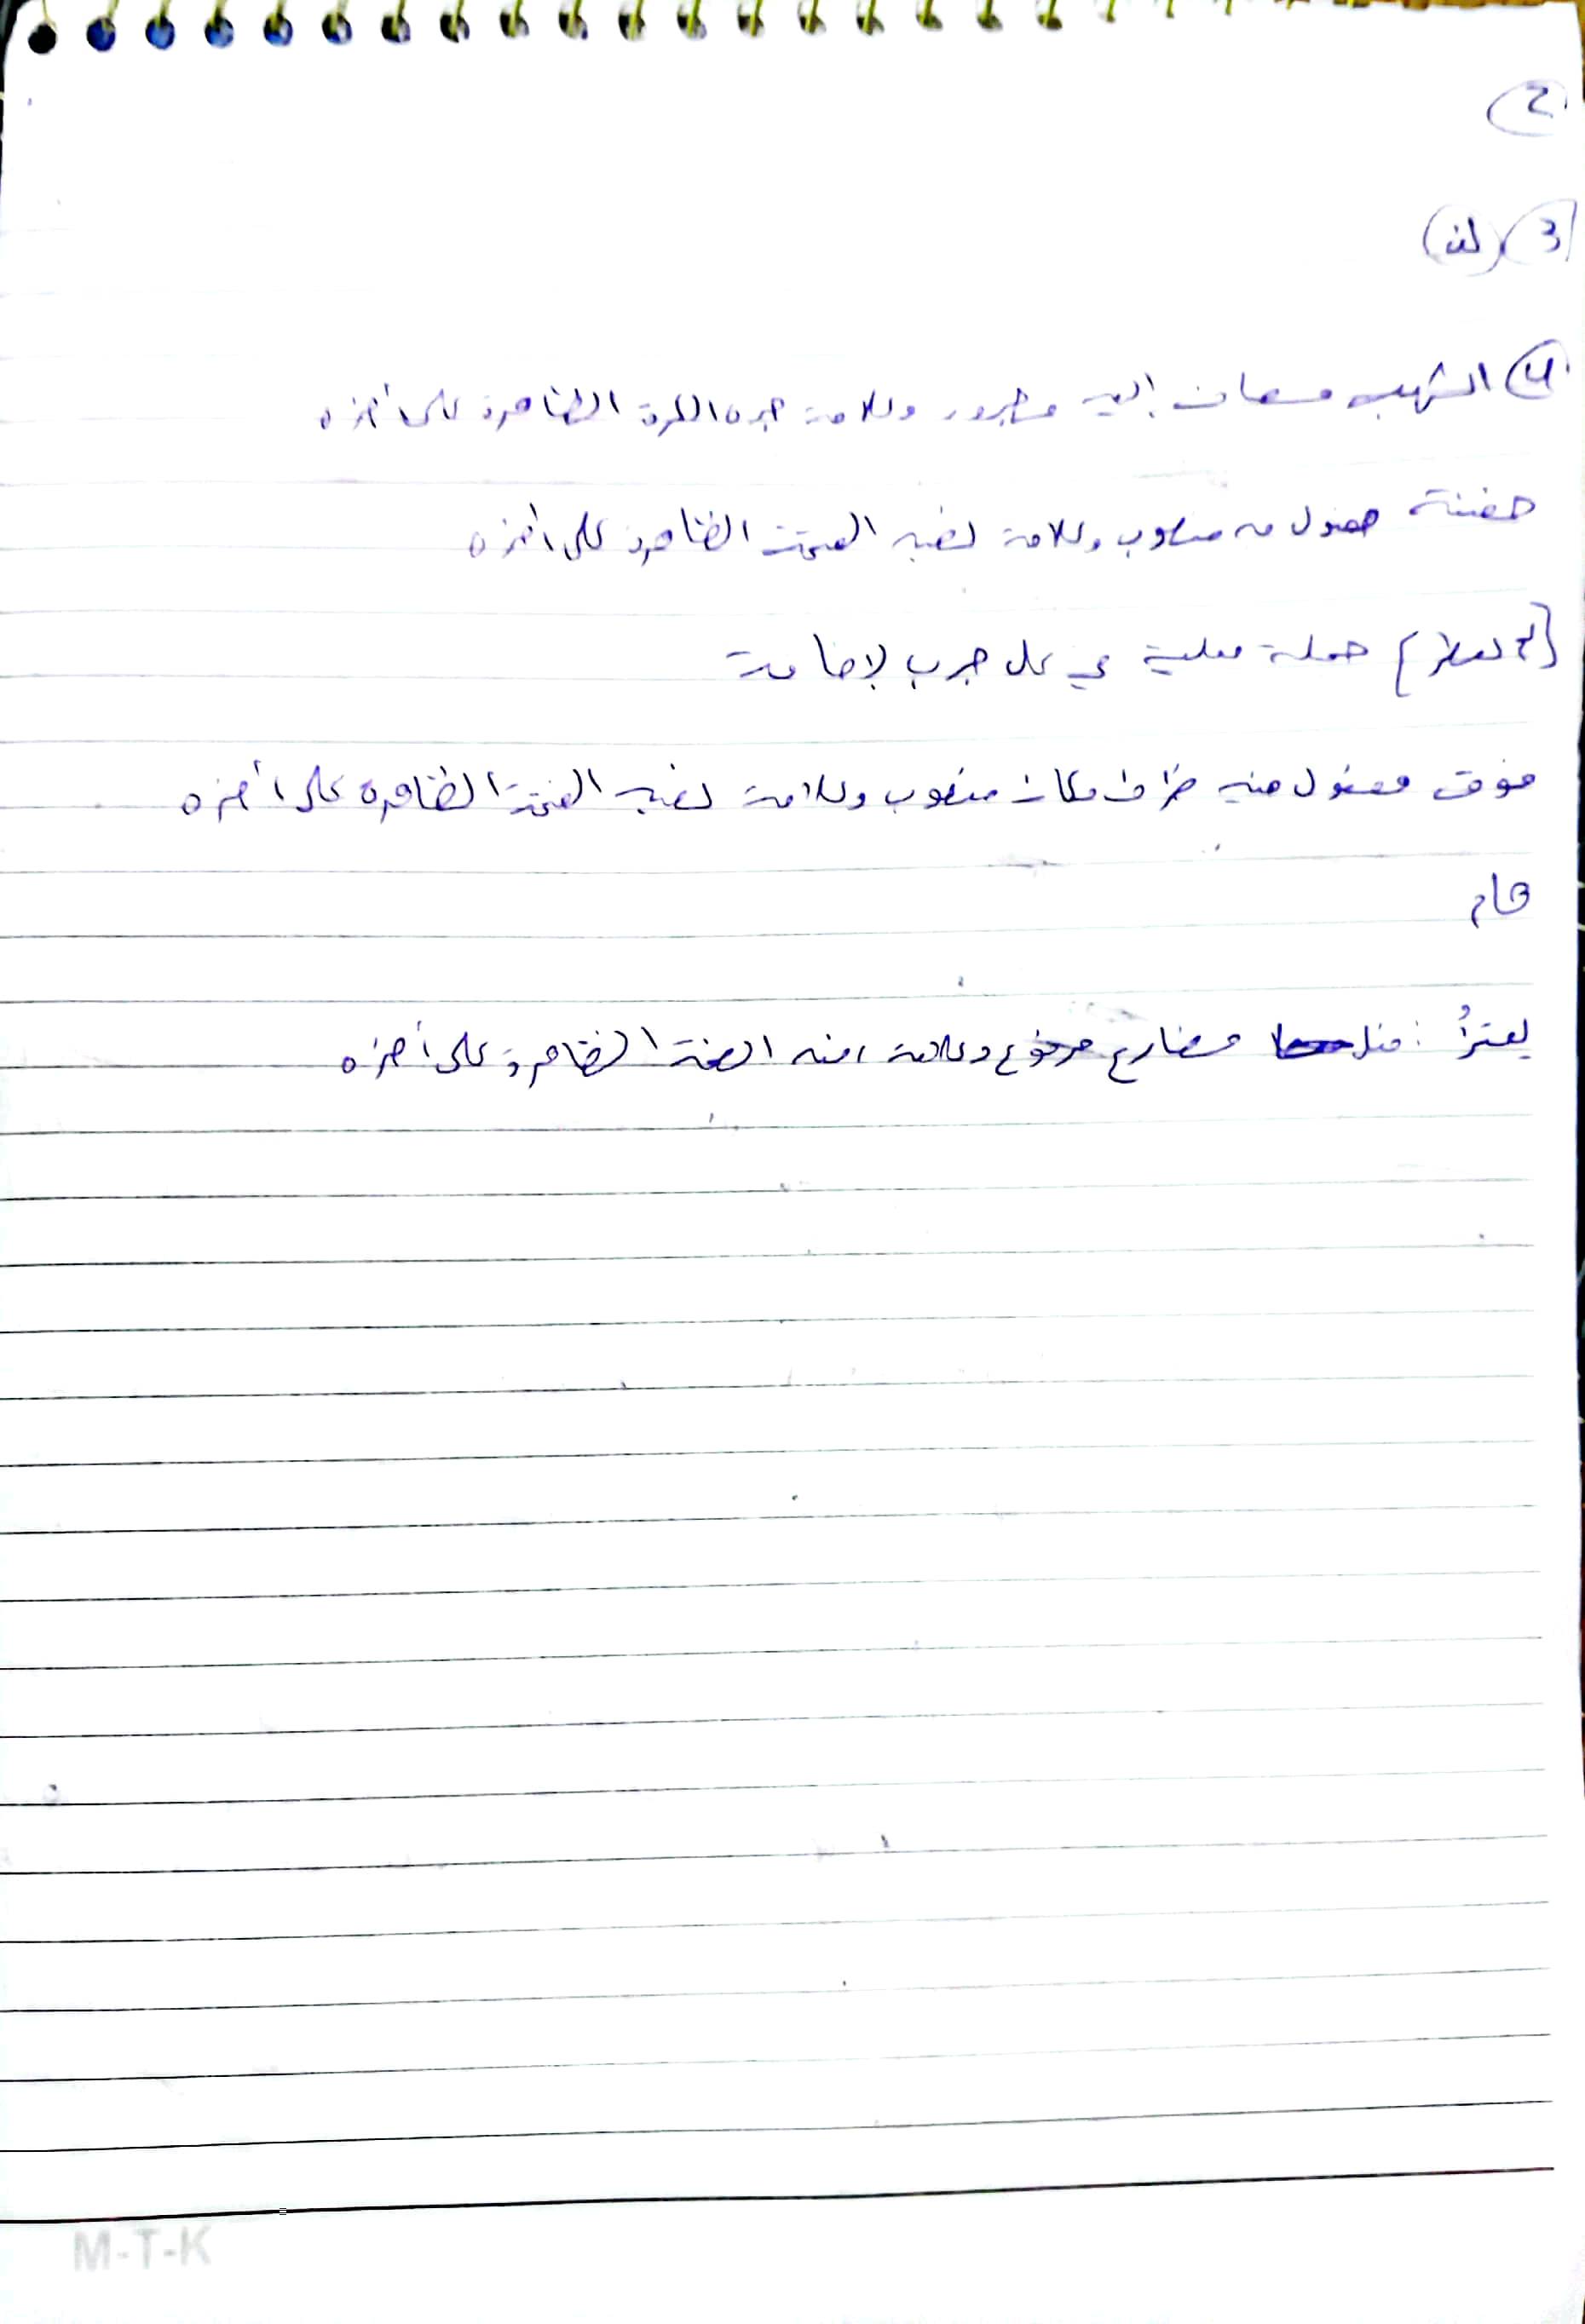 2
3 (لن)
4 الشهب مضاف إليه مجرور وعلامة جره الكسرة الظاهرة على أخره
مفعول به منصوب وعلامة نصبه الفتحة الظاهرة على أخره
جملة فعلية في محل جر بالإضافة
فوق مفعول فيه ظرف مكان منصوب وعلامة نصبه الفتحة الظاهرة على أخره
هام
فعل مضارع مرفوع وعلامة رفعه الضمة الظاهرة على أخره
M-T-K